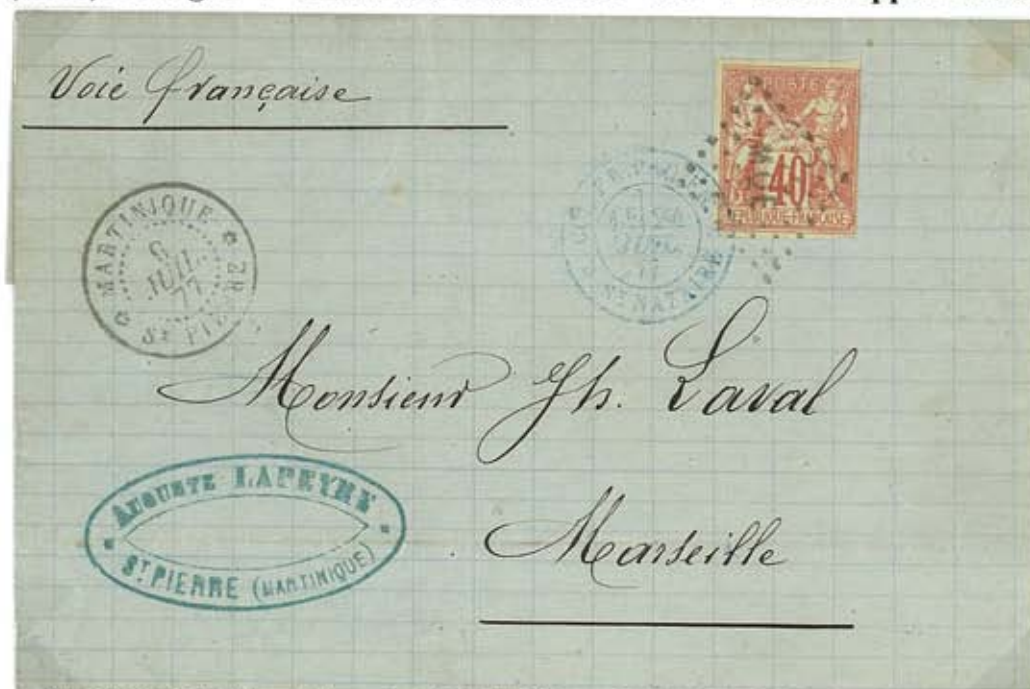 Voie française
40
REPUBLIQUE FRANÇAISE
MQE
MARTINIQUE
9
JUIL.
77
ST PIERRE
ST NAZAIRE
Monsieur Jh. Laval
Marseille
AUGUSTE LAPEYRE
ST PIERRE (MARTINIQUE)